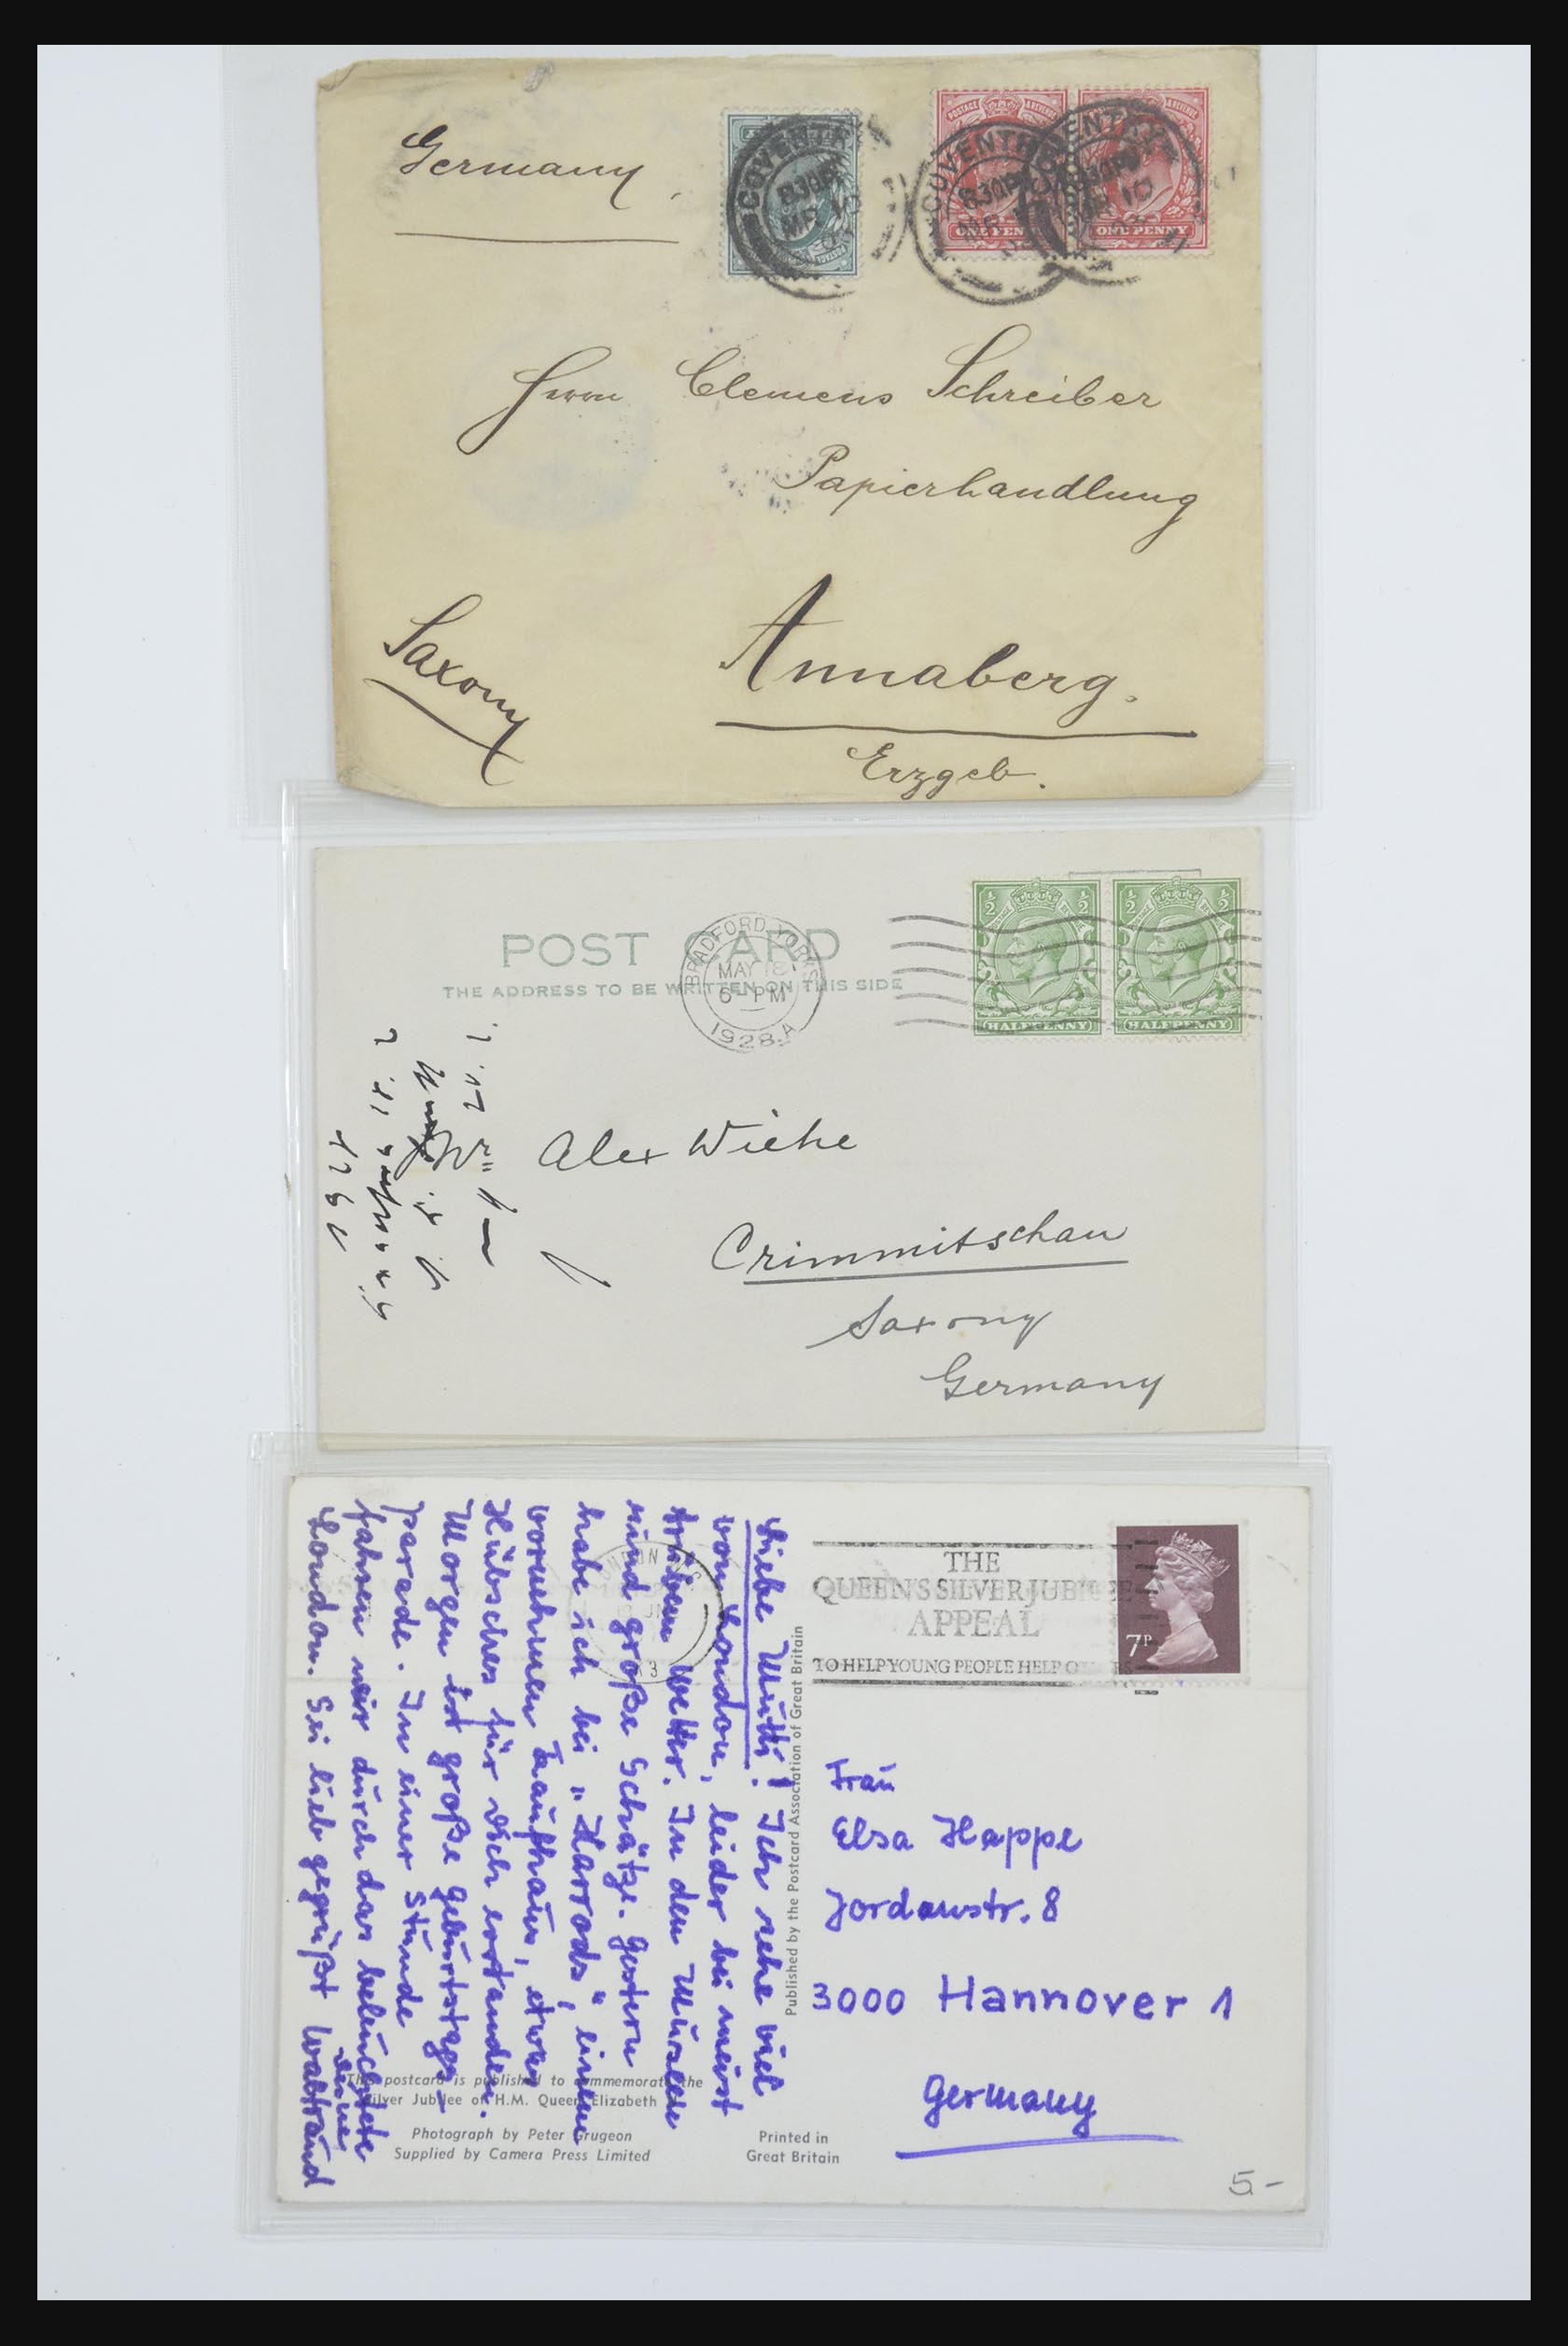 Germany
COVENTRY
8 30 PM
MR 10
COVENTRY
8 30 PM
MR
COVENTRY
8 30 PM
MR 10
POSTAGE & REVENUE
ONE PENNY
POSTAGE & REVENUE
ONE PENNY
Herrn Clemens Schreiber
Papierhandlung
Annaberg.
Erzgeb.
Saxony
POST CARD
THE ADDRESS TO BE WRITTEN ON THIS SIDE
BRADFORD YORKS
MAY 18
6 - PM
1928. A
½ ½
HALFPENNY
½ ½
HALFPENNY
Alex Wiehe
Crimmitschau
Saxony
Germany
Liebe Mutti! Ich sehe viel
von London, leider bei meist
trübem Wetter. In den Museen
sind große Schätze. Gestern
habe ich bei „Harrods“, einem
vornehmen Kaufhaus, etwas
Hübsches für Dich erstanden.
Morgen ist große Geburtstags-
parade. In einer Stunde
fahren wir durch das beleuchtete
London. Sei lieb gegrüßt
Deine
Waltraud
THE
QUEEN'S SILVER JUBILEE
APPEAL
TO HELP YOUNG PEOPLE HELP OTHERS
7P
Published by the Postcard Association of Great Britain
Frau
Elsa Happe
Jordanstr. 8
3000 Hannover 1
Germany
This postcard is published to commemorate the
Silver Jubilee of H.M. Queen Elizabeth
Photograph by Peter Grugeon
Supplied by Camera Press Limited
Printed in
Great Britain
5.-